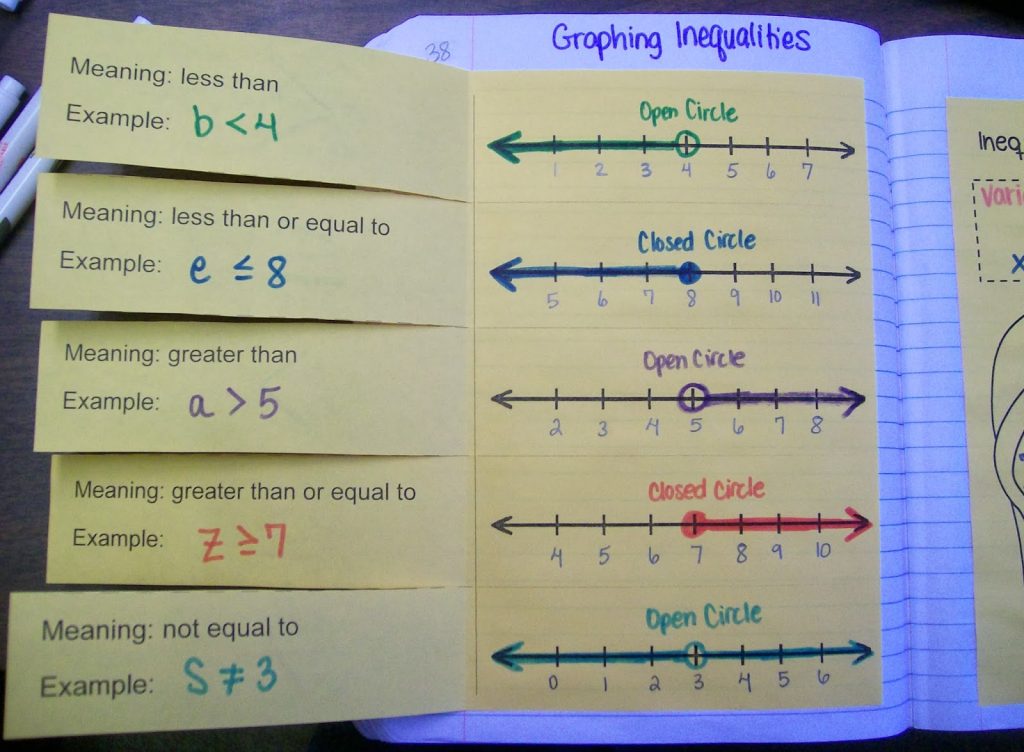 38
Graphing Inequalities
Meaning: less than
Example: b < 4
Open Circle
1 2 3 4 5 6 7
Meaning: less than or equal to
Example: e ≤ 8
Closed Circle
5 6 7 8 9 10 11
Meaning: greater than
Example: a > 5
Open Circle
2 3 4 5 6 7 8
Meaning: greater than or equal to
Example: z ≥ 7
Closed Circle
4 5 6 7 8 9 10
Meaning: not equal to
Example: S ≠ 3
Open Circle
0 1 2 3 4 5 6
Ineq
Vari
x